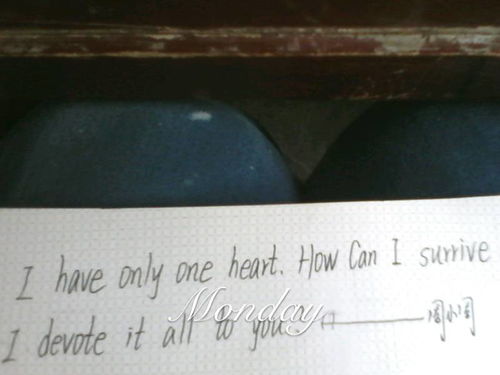 I have only one heart. How Can I survive
I devote it all to you —— 周小周
Monday